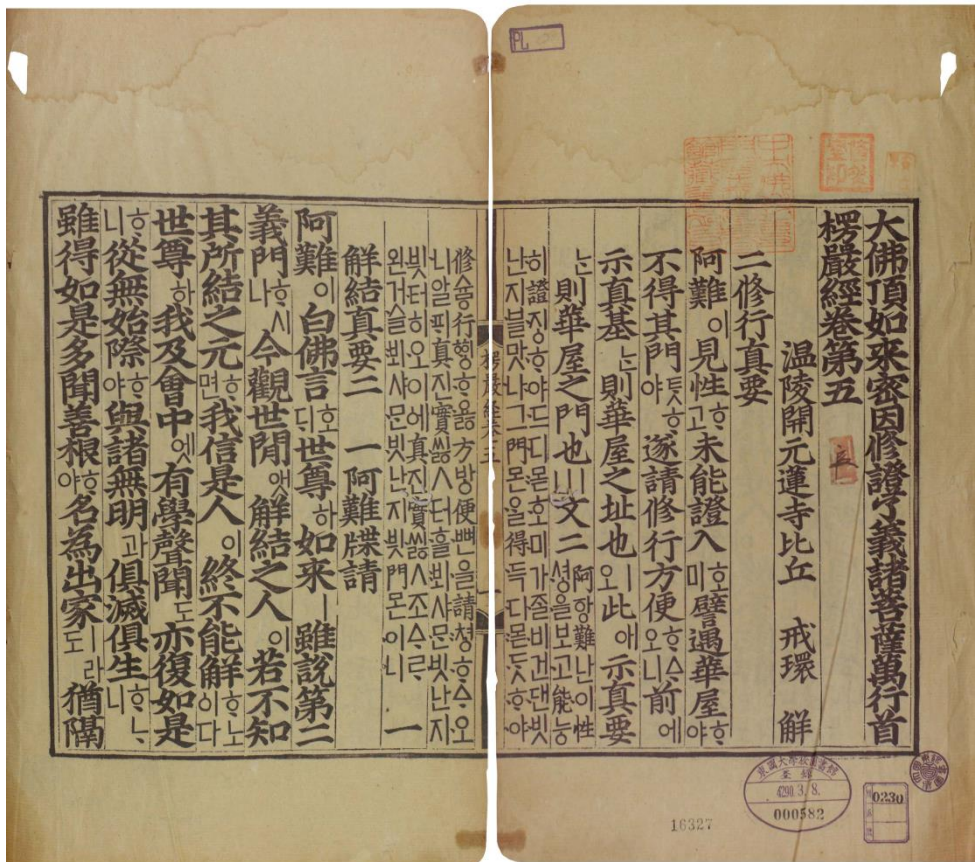 大佛頂如來密因修證了義諸菩薩萬行首
楞嚴經卷第五
溫陵開元蓮寺比丘 戒環 解
二修行真要
阿難이見性ᄒᆞ고未能證入호미譬遇華屋ᄒᆞ야
不得其門ᄐᆞᆺᄒᆞ야遂請修行方便ᄒᆞᅀᆞ오니前에
示真基ᄂᆞᆫ則華屋之址也ㅣ오此애示真要
ᄂᆞᆫ則華屋之門也ㅣ니文二 阿ᅙᅡᆼ難난이性
셩을보고能능
히證징ᄒᆞ야드디몯호미가ᄌᆞᆯ비건댄빗
난지블맛나그門몬ᄋᆞᆯ得득디몯ᄃᆞᆺᄒᆞ야
楞嚴經卷五
修슣行ᅘᆡᆼᄒᆞᇙ方방便뼌을請쳥ᄒᆞᅀᆞ오
니알ᄑᆡ真진實씷ㅅ터흘뵈샤ᄆᆞᆫ빗난지
빗터히오이에真진實씷ㅅ조ᅀᆞᄅᆞ
왼거슬뵈샤ᄆᆞᆫ빗난지빗門몬이니 一
解結真要二 一阿難牒請
阿難이白佛言호ᄃᆡ世尊하如來ㅣ雖說第二
義門ᄒᆞ시나今觀世閒앳解結之人이若不知
其所結之元ᄒᆞ면我信是人이終不能解ᄒᆞ노이다
世尊하我及會中엣有學聲聞도亦復如是
ᄒᆞ니從無始際ᄒᆞ야與諸無明과俱滅俱生ᄒᆞᄂᆞ니
雖得如是多聞善根ᄒᆞ야名為出家ㅣ라도猶隔
東國大學校圖書館
登錄
4290.3.8.
000582
0230
16327